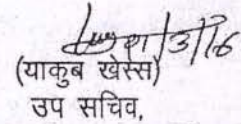 (याकुब खेस्स)
उप सचिव,